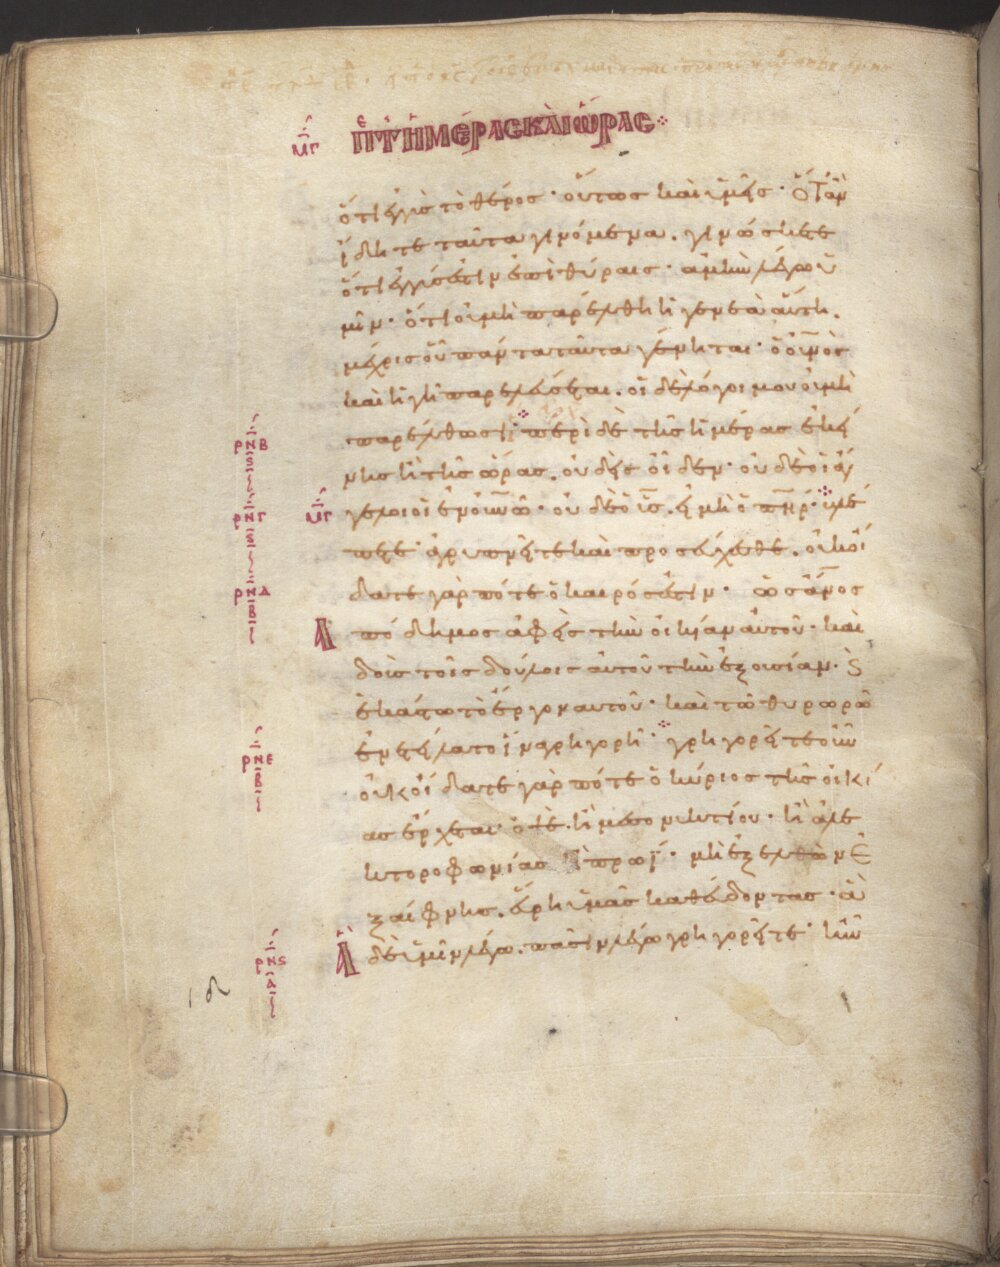 μγ πε τ ημέρας και ώρας
ὅτι ἐγγὺς τὸ θέρος· οὕτως καὶ ὑμεῖς· ὅταν
ἴδητε ταῦτα γινόμενα, γινώσκετε
ὅτι ἐγγύς ἐστιν ἐπὶ θύραις· ἀμὴν λέγω ὑ
μῖν· ὅτι οὐ μὴ παρέλθη ἡ γενεὰ αὕτη,
μέχρις οὗ πάντα ταῦτα γένηται· ὁ οὐνος
καὶ ἡ γῆ παρελεύσεται, οἱ δὲ λόγοι μου οὐ μὴ
παρέλθωσιν· περὶ δὲ τῆς ἡμέρας ἐκεί
νης ἢ τῆς ὥρας, οὐδεὶς οἶδεν· οὐδὲ οἱ ἄγ
γελοι οἱ ἐν οὐνω· οὐδὲ ὁ υς, εἰ μὴ ὁ πηρ· βλέ
πετε ἀγρυπνεῖτε καὶ προσεύχεσθε, οὐκ οἴ
δατε γὰρ πότε ὁ καιρός ἐστιν· ὡς ανος
ἀπόδημος ἀφεὶς τὴν οἰκίαν αὐτοῦ· καὶ
δοὺς τοῖς δούλοις αὐτοῦ τὴν ἐξουσίαν· ϗ
ἑκάστω τὸ ἔργον αὐτοῦ· καὶ τῶ θυρωρῶ
ἐνετείλατο ἵνα γρηγορῆ· γρηγορεῖτε οὖν
οὐκ οἴδατε γὰρ πότε ὁ κύριος τῆς οἰκί
ας ἔρχεται· ὀψὲ· ἢ μεσονυκτίου· ἢ ἀλε
κτοροφωνίας ἢ πρωΐ· μὴ ἐξελθὼν ἐ
ξαίφνης, εὕρη ὑμᾶς καθεύδοντας· ἃ
δὲ ὑμῖν λέγω, πᾶσιν λέγω γρηγορεῖτε· ἦν
ρνβ
ς
ρνγ
ς
μγ
ρνδ
β
ρνε
β
ρνς
α